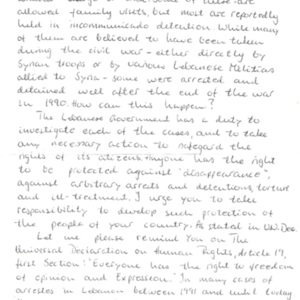 allowed family visits, but most are reportedly
held in incommunicado detention. While many
of them are believed to have been taken
during the civil war - either directly by
Syrian troops or by various Lebanese Militias
allied to Syria - some were arrested and
detained well after the end of the war
in 1990. How can this happen?
The Lebanese Government has a duty to
investigate each of the cases, and to take
any necessary action to safegard the
rights of its citizens. Anyone has the right
to be protected against "disappearance",
against arbitrary arrests and detentions, torture
and ill-treatment. I urge you to take
responsibility to develop such protection of
the people of your country. As stated in
Let me please remind you on The
Universal Declaration on Human Rights, Article 19,
first Section: "Everyone has the right to freedom
of opinion and Expression." In many cases of
arrests in Lebanon between 1991 and until today